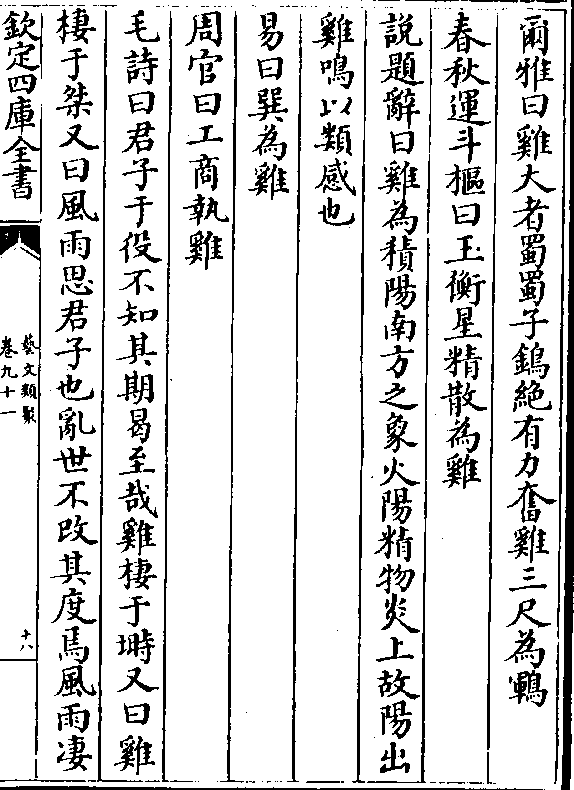 爾雅曰雞大者蜀蜀子鷂絶有力奮雞三尺為鶤
春秋運斗樞曰玉衡星精散為雞
說題辭曰雞為積陽南方之象火陽精物炎上故陽出
雞鳴以類感也
易曰巽為雞
周官曰工商執雞
毛詩曰君子于役不知其期曷至哉雞棲于塒又曰雞
棲于桀又曰風雨思君子也亂世不改其度焉風雨凄
欽定四庫全書
藝文類聚
卷九十一
十八